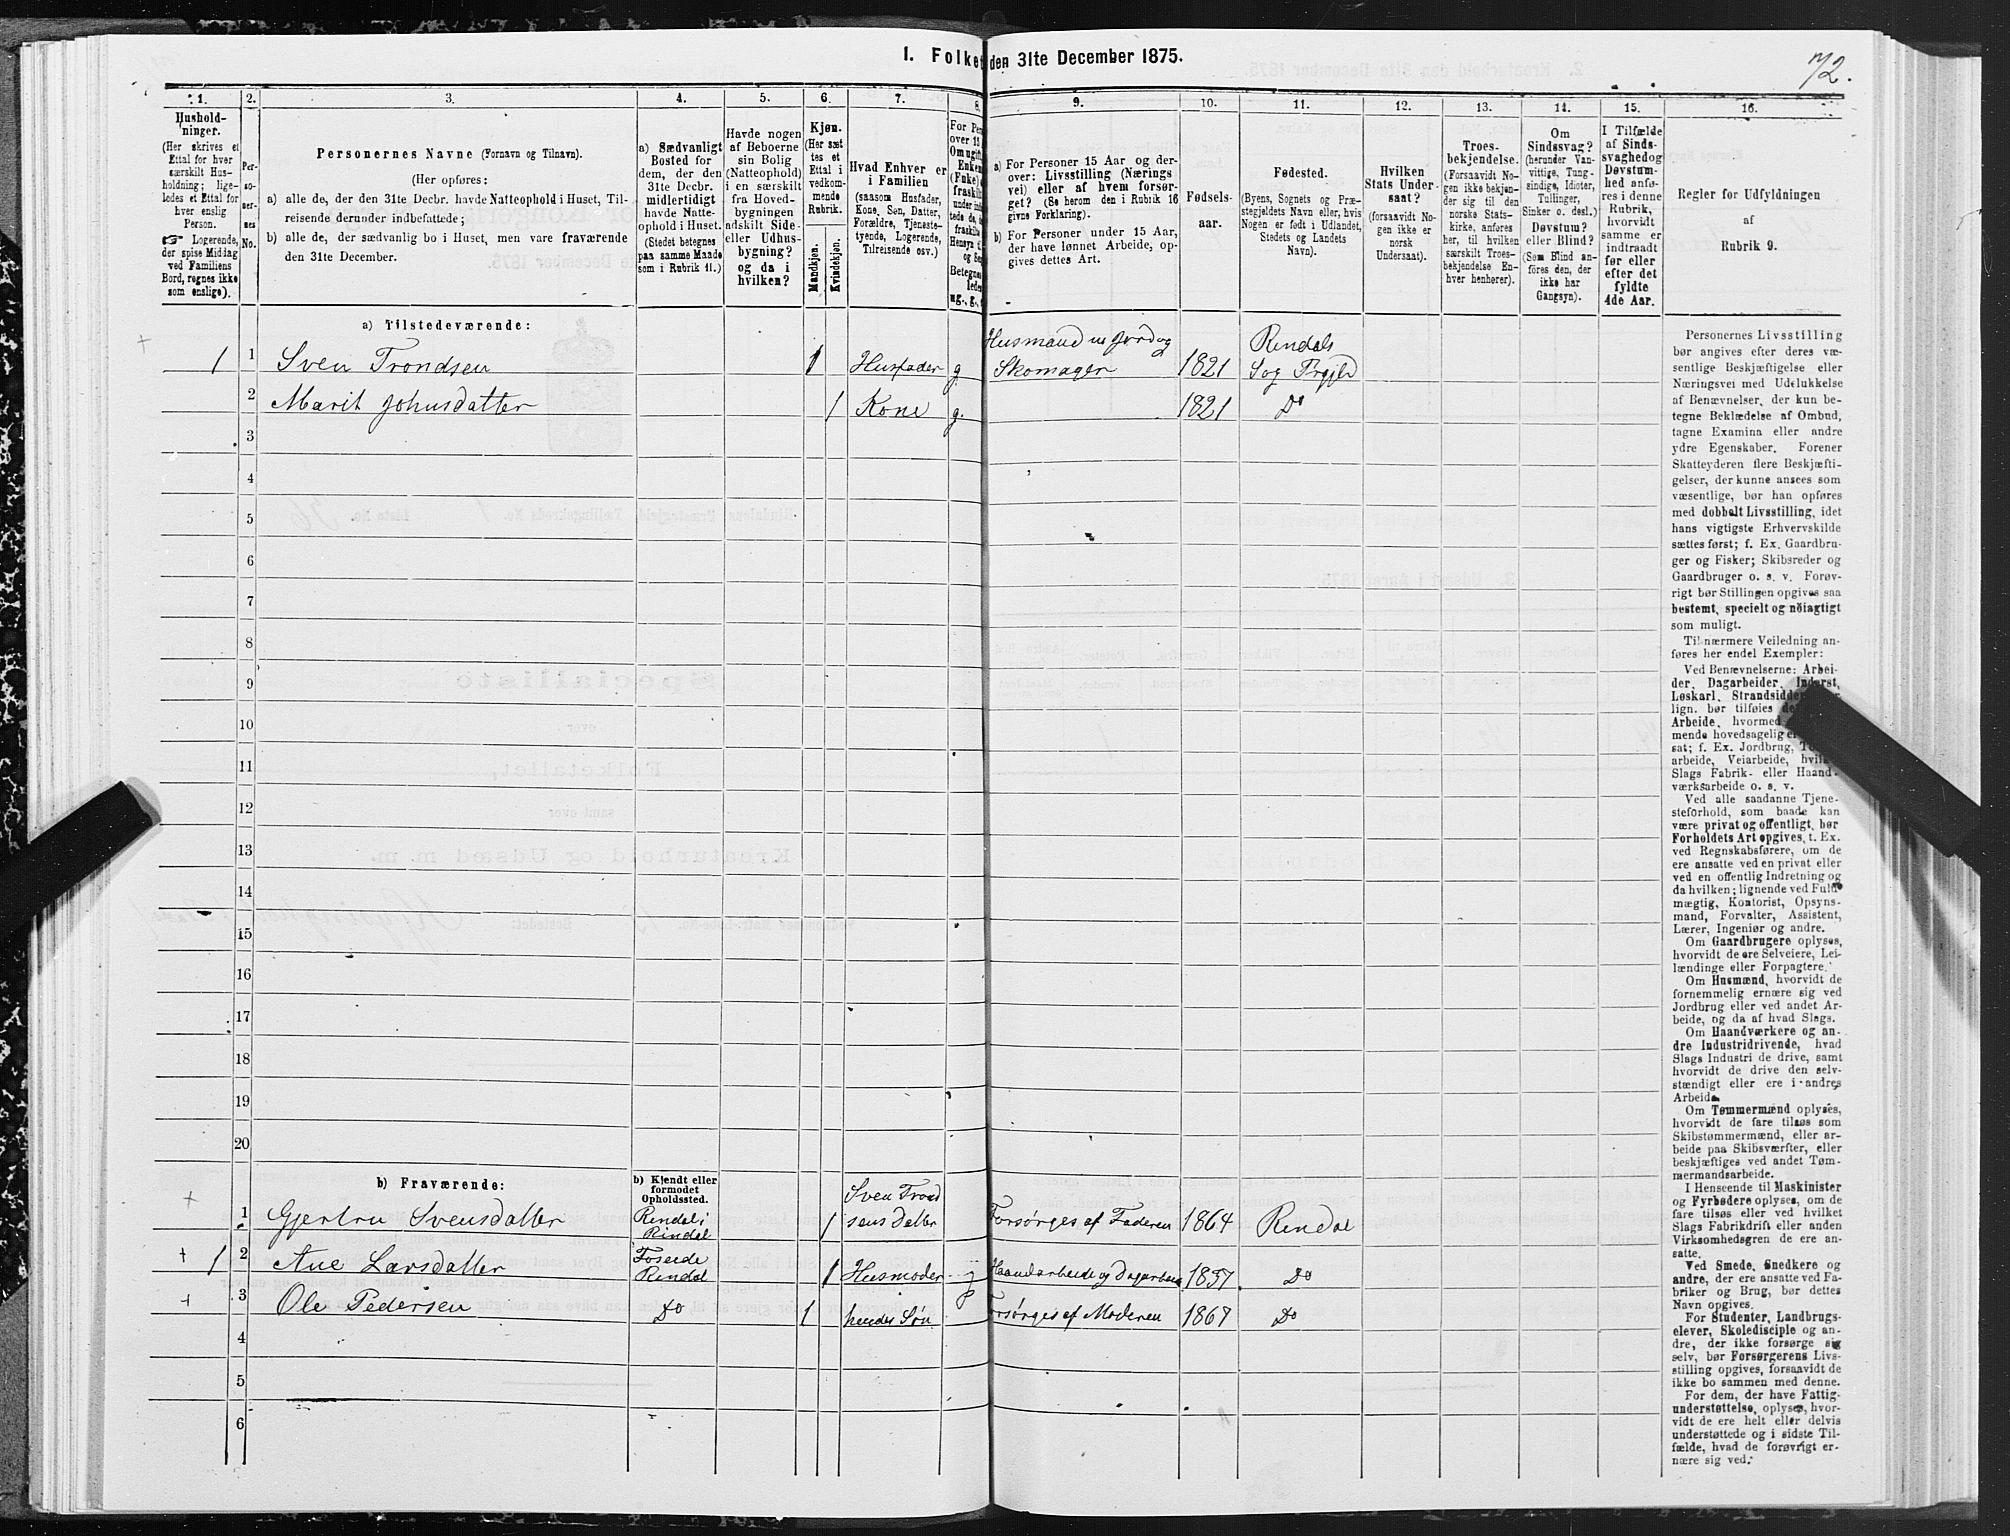 1. Folket den 31te December 1875.
72.
1. 2. 3. 4. 5. 6. 7. 8. 9. 10. 11. 12. 13. 14. 15. 16.
Hushold-
ninger.
(Her skrives et
Ettal for hver
særskilt Hus-
holdning; lige-
ledes et Ettal for
hver enslig
Person.
☞ Logerende,
der spise Middag
ved Familiens
Bord, regnes ikke
som enslige).
Per-
so-
ner-
nes
No.
Personernes Navne (Fornavn og Tilnavn).
(Her opføres:
a) alle de, der den 31te Decbr. havde Natteophold i Huset, Til-
reisende derunder indbefattede;
b) alle de, der sædvanlig bo i Huset, men vare fraværende
den 31te December.
a) Sædvanligt
Bosted for
dem, der den
31te Decbr.
midlertidigt
havde Natte-
ophold i Huset.
(Stedet betegnes
paa samme Maade
som i Rubrik 11.)
Havde nogen
af Beboerne
sin Bolig
(Natteophold)
i en særskilt
fra Hoved-
bygningen
adskilt Side-
eller Udhus-
bygning?
og da i
hvilken?
Kjøn.
(Her sæt
tes et
Ettal i
vedkom-
mende
Rubrik.
Mandkjøn.
Kvindekjøn.
Hvad Enhver er
i Familien
(saasom Husfader,
Kone, Søn, Datter,
Forældre, Tjeneste-
tyende, Logerende,
Tilreisende osv.)
For Per
over 15
Om ugift
Enke
(Fuke)
fraski
under in
tede de,
fraskil
Hensyn t
og Se
Betegnes
lede
ug., g.,
a) For Personer 15 Aar og der-
over: Livsstilling (Nærings
vei) eller af hvem forsør-
get? (Se herom den i Rubrik 16
givne Forklaring).
b) For Personer under 15 Aar,
der have lønnet Arbeide, op-
gives dettes Art.
Fødsels-
aar.
Fødested.
(Byens, Sognets og Præ-
stegjeldets Navn eller, hvis
Nogen er født i Udlandet,
Stedets og Landets
Navn).
Hvilken
Stats Under-
saat?
(forsaavidt No-
gen ikke er
norsk
Undersaat).
Troes-
bekjendelse.
(Forsaavidt No-
gen ikke bekjen-
der sig til den
norske Stats-
kirke, anføres
her, til hvilken
særskilt Troes-
bekjendelse En-
hver henhører).
Om
Sindssvag?
(herunder Van-
vittige, Tung-
sindige, Idioter,
Tullinger,
Sinker o. desl.)
Døvstum?
eller Blind?
(Som Blind an-
føres den, der
ikke har
Gangsyn).
I Tilfælde
af Sinds-
svaghed og
Døvstum-
hed anfø-
res i denne
Rubrik,
hvorvidt
samme er
indtraadt
før eller
efter det
fyldte
4de Aar.
Regler for Udfyldningen
af
Rubrik 9.
a) Tilstedeværende:
1 1 Sven Trondsen 1 Husfader g Husmand m Jord og Skomager 1821 Rendals Sog Prgjld
2 Marit Johnsdatter 1 Kone g. 1821 Do
3
4
5
6
7
8
9
10
11
12
13
14
15
16
17
18
19
20
b) Fraværende:
b) Kjendt eller
formodet
Opholdssted.
1 Gjertru Svensdatter Rendal i Rindal 1 Sven Trond sens datter Forsørges af Faderen 1864 Rendal
1 2 Ane Larsdatter Foseide Rendal 1 Husmoder Haandarbeide og Dagarbeid 1837 Do
3 Ole Pedersen Do 1 hendes Søn Forsørges af Moderen 1867 Do
4
5
6
Personernes Livsstilling
bør angives efter deres væ-
sentlige Beskjæftigelse eller
Næringsvei med Udelukkelse
af Benævnelser, der kun be-
tegne Beklædelse af Ombud,
tagne Examina eller andre
ydre Egenskaber. Forener
Skatteyderen flere Beskjæfti-
gelser, der kunne ansees som
væsentlige, bør han opføres
med dobbelt Livsstilling, idet
hans vigtigste Erhvervskilde
sættes først; f. Ex. Gaardbru-
ger og Fisker; Skibsreder og
Gaardbruger o. s. v. Forøv-
rigt bør Stillingen opgives saa
bestemt, specielt og nøiagtigt
som muligt.
Til nærmere Veiledning an-
føres her endel Exempler:
Ved Benævnelserne: Arbei-
der, Dagarbeider, Inderst,
Løskarl, Strandsidder
lign. bør tilføies
Arbeide, hvormed
mende hovedsagelig
sat; f. Ex. Jordbrug,
arbeide, Veiarbeide,
Slags Fabrik- eller Haand-
værksarbeide o. s. v.
Ved alle saadanne Tjene-
steforhold, som baade kan
være privat og offentligt, bør
Forholdets Art opgives, t. Ex.
ved Regnskabsførere, om de
ere ansatte ved en privat eller
ved en offentlig Indretning og
da hvilken; lignende ved Fuld-
mægtig, Kontorist, Opsyns-
mand, Forvalter, Assistent,
Lærer, Ingeniør og andre.
Om Gaardbrugere oplyses,
hvorvidt de ere Selveiere, Lei-
lændinge eller Forpagtere.
Om Husmænd, hvorvidt de
fornemmelig ernære sig ved
Jordbrug eller ved andet Ar-
beide, og da af hvad Slags.
Om Haandværkere og an-
dre Industridrivende, hvad
Slags Industri de drive, samt
hvorvidt de drive den selv-
stændigt eller ere i andres
Arbeide.
Om Tømmermænd oplyses,
hvorvidt de fare tilsøs som
Skibstømmermænd, eller ar-
beide paa Skibsværfter, eller
beskjæftiges ved andet Tøm-
mermandsarbeide.
I Henseende til Maskinister
og Fyrbødere oplyses, om de
fare tilsøs eller ved hvilket
Slags Fabrikdrift eller anden
Virksomhedsgren de ere an-
satte.
Ved Smede, Snedkere og
andre, der ere ansatte ved Fa-
briker og Brug, bør dettes
Navn opgives.
For Studenter, Landbrugs-
elever, Skoledisciple og an-
dre, der ikke forsørge sig
selv, bør Forsørgerens Livs-
stilling opgives, forsaavidt de
ikke bo sammen med denne.
For dem, der have Fattig-
understøttelse, oplyses, hvor-
vidt de ere helt eller delvis
understøttede og i sidste Til-
fælde, hvad de forøvrigt er-
nære sig ved.